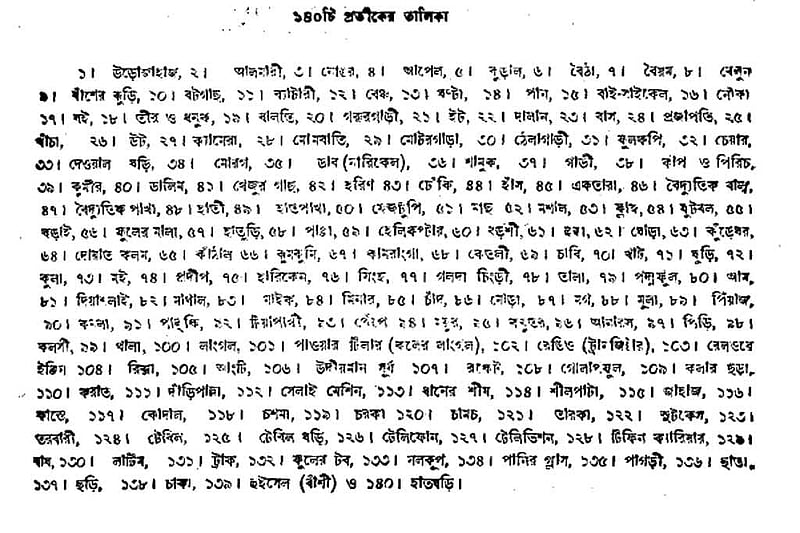 ১৪০টি প্রতীকের তালিকা
১। উড়োজাহাজ, ২। আলমারী, ৩। নোঙ্গর, ৪। আপেল, ৫। কুড়াল, ৬। বৈঠা, ৭। বৈয়ম, ৮। বেলুন
৯। বাঁশের কুড়ি, ১০। বটগাছ, ১১। ব্যাটারী, ১২। বেঞ্চ, ১৩। ঘণ্টা, ১৪। পান, ১৫। বাই-সাইকেল, ১৬। নৌকা
১৭। বই, ১৮। তীর ও ধনুক, ১৯। বালতি, ২০। গরুরগাড়ী, ২১। ইট, ২২। দালান, ২৩। বাস, ২৪। প্রজাপতি, ২৫।
খাঁচা, ২৬। উট, ২৭। ক্যামেরা, ২৮। মোমবাতি, ২৯। মোটরগাড়ী, ৩০। ঠেলাগাড়ী, ৩১। ফুলকপি, ৩২। চেয়ার,
৩৩। দেওয়াল ঘড়ি, ৩৪। মোরগ, ৩৫। ডাব (নারিকেল), ৩৬। শামুক, ৩৭। গাভী, ৩৮। কাপ ও পিরিচ,
৩৯। কুমীর, ৪০। ডালিম, ৪১। খেজুর গাছ, ৪২। হরিণ ৪৩। ঢেঁকি, ৪৪। হাঁস, ৪৫। একতারা, ৪৬। বৈদ্যুতিক বাল্ব,
৪৭। বৈদ্যুতিক পাখা, ৪৮। হাতী, ৪৯। হাতপাখা, ৫০। ফেজটুপি, ৫১। মাছ ৫২। মশাল, ৫৩। ফ্লাস্ক, ৫৪। ফুটবল, ৫৫।
চড়াই, ৫৬। ফুলের মালা, ৫৭। হাতুড়ি, ৫৮। পাল্লা, ৫৯। হেলিকপ্টার, ৬০। বড়শী, ৬১। হুক্কা, ৬২। ঘোড়া, ৬৩। কুঁড়েঘর,
৬৪। দোয়াত কলম, ৬৫। কাঁঠাল ৬৬। ঝুমঝুমি, ৬৭। কামরাংগা, ৬৮। কেতলী, ৬৯। চাবি, ৭০। খাট, ৭১। ঘুড়ি, ৭২।
কুলা, ৭৩। মই, ৭৪। প্রদীপ, ৭৫। হারিকেন, ৭৬। সিংহ, ৭৭। গলদা চিংড়ী, ৭৮। তালা, ৭৯। পদ্মফুল, ৮০। আম,
৮১। দিয়াশলাই, ৮২। মাথাল, ৮৩। মাইক, ৮৪। মিনার, ৮৫। চাঁদ, ৮৬। মোড়া, ৮৭। মগ, ৮৮। মুলা, ৮৯। পিঁয়াজ,
৯০। কমলা, ৯১। পালকি, ৯২। টিয়াপাখী, ৯৩। পেঁপে ৯৪। ময়ুর, ৯৫। কবুতর, ৯৬। আনারস, ৯৭। পিঁড়ি, ৯৮।
কলসী, ৯৯। থালা, ১০০। লাংগল, ১০১। পাওয়ার টিলার (কলের লাংগল), ১০২। রেডিও (ট্রানজিস্টার), ১০৩। রেলওয়ে
ইঞ্জিন ১০৪। রিক্সা, ১০৫। আংটি, ১০৬। উদীয়মান সূর্য ১০৭। রকেট, ১০৮। গোলাপফুল, ১০৯। কলার ছড়া,
১১০। করাত, ১১১। দাঁড়িপাল্লা, ১১২। সেলাই মেশিন, ১১৩। ধানের শীষ, ১১৪। শীলপাটা, ১১৫। জাহাজ, ১১৬।
কাস্তে, ১১৭। কোদাল, ১১৮। চশমা, ১১৯। চরকা ১২০। চামচ, ১২১। তারকা, ১২২। সুটকেস, ১২৩।
তরবারী, ১২৪। টেবিল, ১২৫। টেবিল ঘড়ি, ১২৬। টেলিফোন, ১২৭। টেলিভিশন, ১২৮। টিফিন ক্যারিয়ার, ১২৯।
বাঘ, ১৩০। লাটিম, ১৩১। ট্রাক, ১৩২। ফুলের টব, ১৩৩। নলকূপ, ১৩৪। পানির গ্লাস, ১৩৫। পাগড়ী, ১৩৬। ছাতা,
১৩৭। ছড়ি, ১৩৮। চাকা, ১৩৯। হুইসেল (বাঁশী) ও ১৪০। হাতঘড়ি।